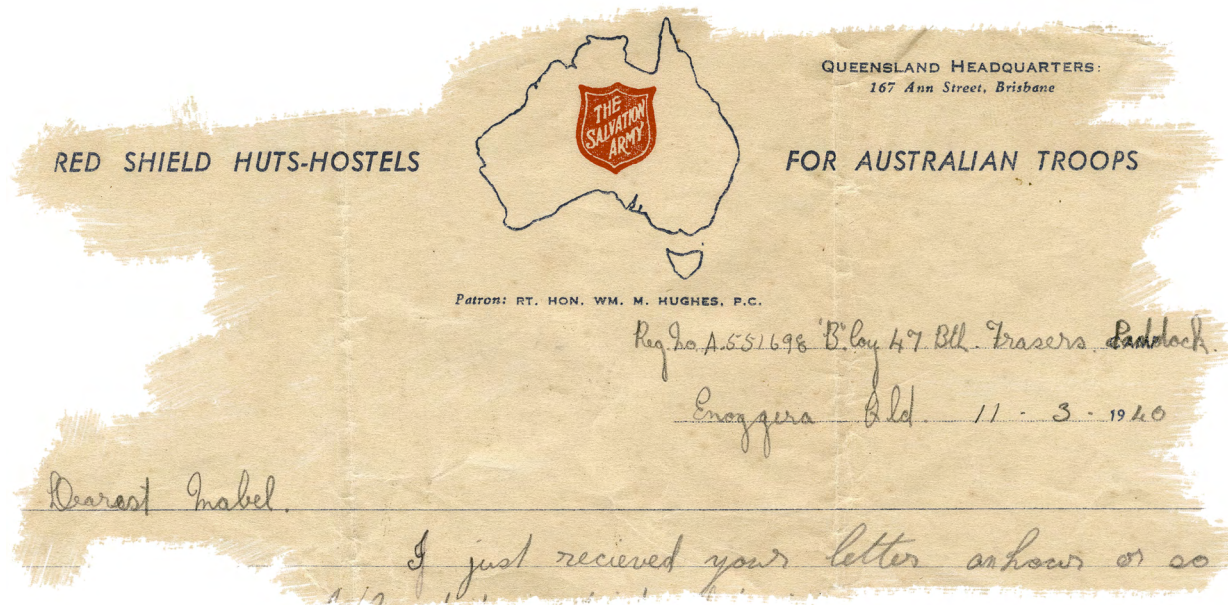 QUEENSLAND HEADQUARTERS:
167 Ann Street, Brisbane
THE
SALVATION
ARMY
RED SHIELD HUTS-HOSTELS
FOR AUSTRALIAN TROOPS
Patron: RT. HON. WM. M. HUGHES, P.C.
Reg. No. A.551698 'B' Coy 47 Btl. Frasers Paddock.
Enoggera Qld. 11 - 3 - 1940
Dearest Mabel.
I just recieved your letter an hour or so